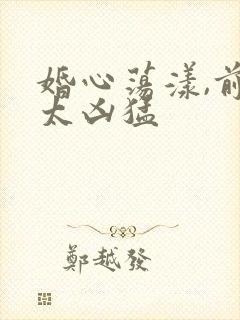 婚心荡漾,前
太凶猛
鄭越發